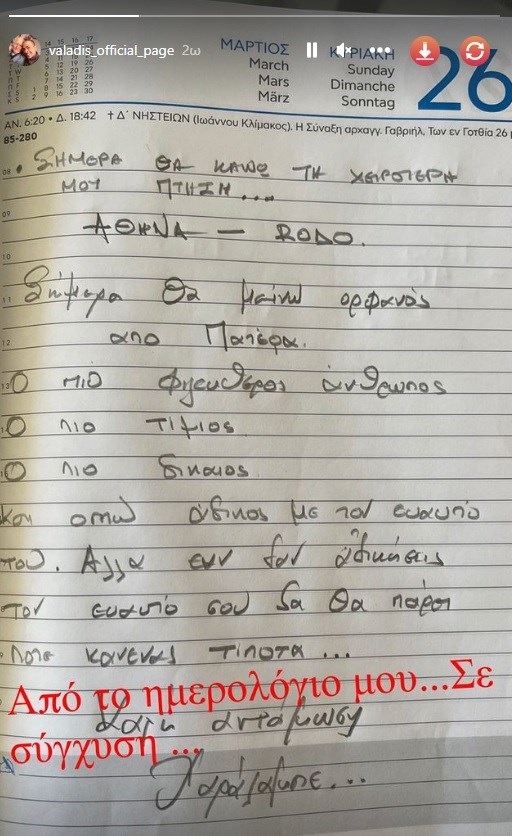 valadis_official_page 2ω
ΜΑΡΤΙΟΣ
March
Mars
März
ΚΥΡΙΑΚΗ
Sunday
Dimanche
Sonntag
26
ΑΝ. 6:20 • Δ. 18:42 † Δ΄ ΝΗΣΤΕΙΩΝ (Ιωάννου Κλίμακος). Η Σύναξη αρχαγγ. Γαβριήλ, Των εν Γοτθία 26 μ
85-280
08 • ΣΗΜΕΡΑ ΘΑ ΚΑΝΩ ΤΗ ΧΕΙΡΟΤΕΡΗ
ΜΟΥ ΠΤΗΣΗ....
09
ΑΘΗΝΑ — RODO.
10
11 Σήμερα θα μείνω ορφανός
12 απο Πατέρα.
Ο πιο άνθρωπος
Ο πιο τίμιος
Ο πιο δικαιος.
και άδικος με τον ευαυτό
του. Αλλα εαν δεν αδικήσεις
τον ευαυτό σου δα θα πάρει
ποτε κανενας τιποτα...
Από το ημερολόγιο μου...Σε
σύγχυση ...
Καλη αντάμωση